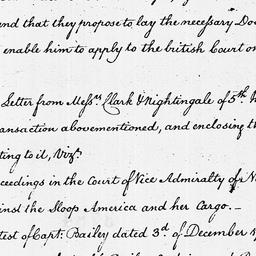 and that they propose to lay the necessary Do
enable him to apply to the british Court o
Letter from Messrs Clark & Nightingale of 5th
ansaction abovementioned, and enclosing th
ting to it, Vizt
ceedings in the Court of Vice Admiralty of N
inst the Sloop America and her Cargo. _
test of Capt. Bailey dated 3d of December